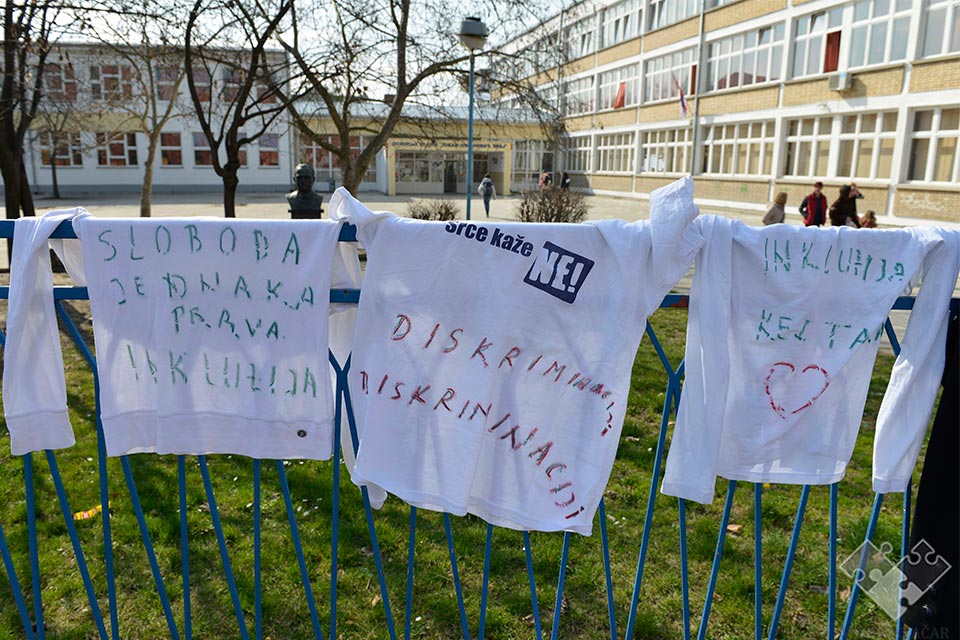 SLOBODA
JEDNAKA
PRAVA
INKLUZIJA
Srce kaže
NE!
DISKRIMINACIJI
DISKRIMINACIJI
INKLUZIJA